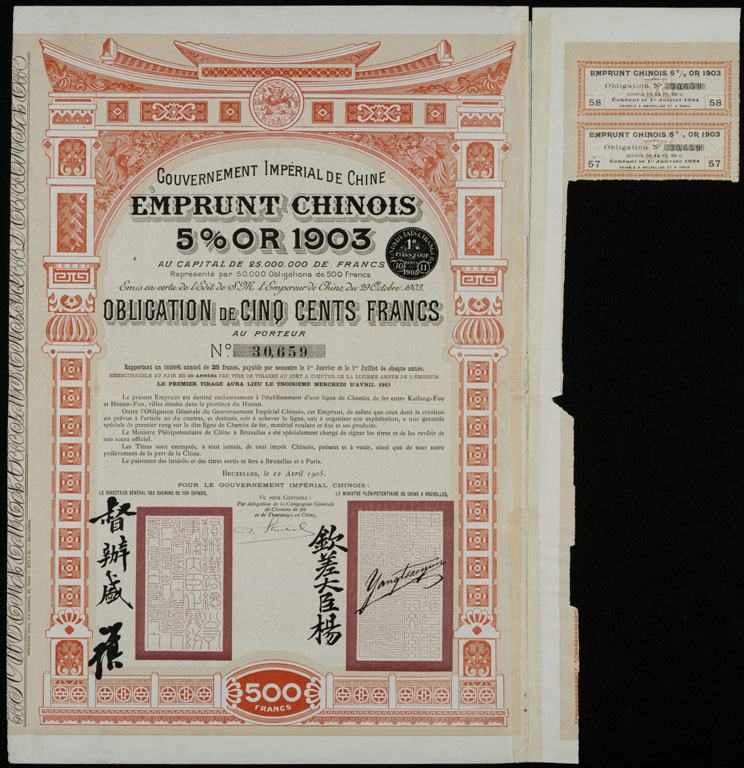 GOUVERNEMENT IMPÉRIAL DE CHINE
EMPRUNT CHINOIS
5% OR 1903
AU CAPITAL DE 25.000.000 DE FRANCS
Représenté par 50.000 Obligations de 500 Francs
Émis en vertu de l'Édit de S.M. l'Empereur de Chine, du 29 Octobre 1903.
OBLIGATION DE CINQ CENTS FRANCS
AU PORTEUR
No. 30,659
Rapportant un intérêt annuel de 25 francs, payable par semestre le 1er Janvier et le 1er Juillet de chaque année.
REMBOURSABLE AU PAIR EN 20 ANNÉES PAR VOIE DE TIRAGES AU SORT A COMPTER DE LA DIXIÈME ANNÉE DE L'ÉMISSION
LE PREMIER TIRAGE AURA LIEU LE TROISIÈME MERCREDI D'AVRIL 1915
Le présent Emprunt est destiné exclusivement à l'établissement d'une ligne de Chemin de fer entre Kaïfong-Fou
et Honan-Fou, villes situées dans la province du Honan.
Outre l'Obligation Générale du Gouvernement Impérial Chinois, cet Emprunt, de même que ceux dont la création
est prévue à l'article 20 du contrat, et destinés, soit à achever la ligne, soit à organiser son exploitation, a une garantie
spéciale de premier rang sur la dite ligne de Chemin de fer, matériel roulant et fixe et ses produits.
Le Ministre Plénipotentiaire de Chine à Bruxelles a été spécialement chargé de signer les titres et de les revêtir de
son sceau officiel.
Les Titres sont exemptés, à tout jamais, de tout impôt Chinois, présent et à venir, ainsi que de tout autre
prélèvement de la part de la Chine.
Le paiement des intérêts et des titres sortis se fera à Bruxelles et à Paris.
BRUXELLES, le 12 Avril 1905.
POUR LE GOUVERNEMENT IMPÉRIAL CHINOIS:
LE DIRECTEUR GÉNÉRAL DES CHEMINS DE FER CHINOIS,
VU POUR CONTROLE:
Par délégation de la Compagnie Générale
de Chemins de fer
et de Tramways en Chine,
LE MINISTRE PLÉNIPOTENTIAIRE DE CHINE A BRUXELLES,
督辦盛
欽差大臣楊
500
FRANCS
EMPRUNT CHINOIS 5% OR 1903
Obligation No 30,659
58 58
Échéant le 1er Juillet 1934
PAYABLE A BRUXELLES ET A PARIS
EMPRUNT CHINOIS 5% OR 1903
Obligation No 30,659
57 57
Échéant le 1er Janvier 1934
PAYABLE A BRUXELLES ET A PARIS